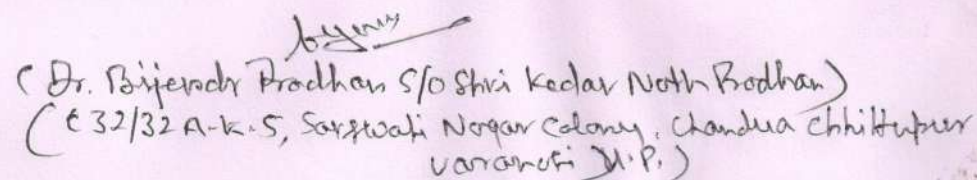 (Dr. Bijendr Pradhan S/o Shri Kedar Nath Pradhan)
(C 32/32 A-K-5, Sarswati Nagar Colony, Chandua Chhittupur
Varanasi U.P.)